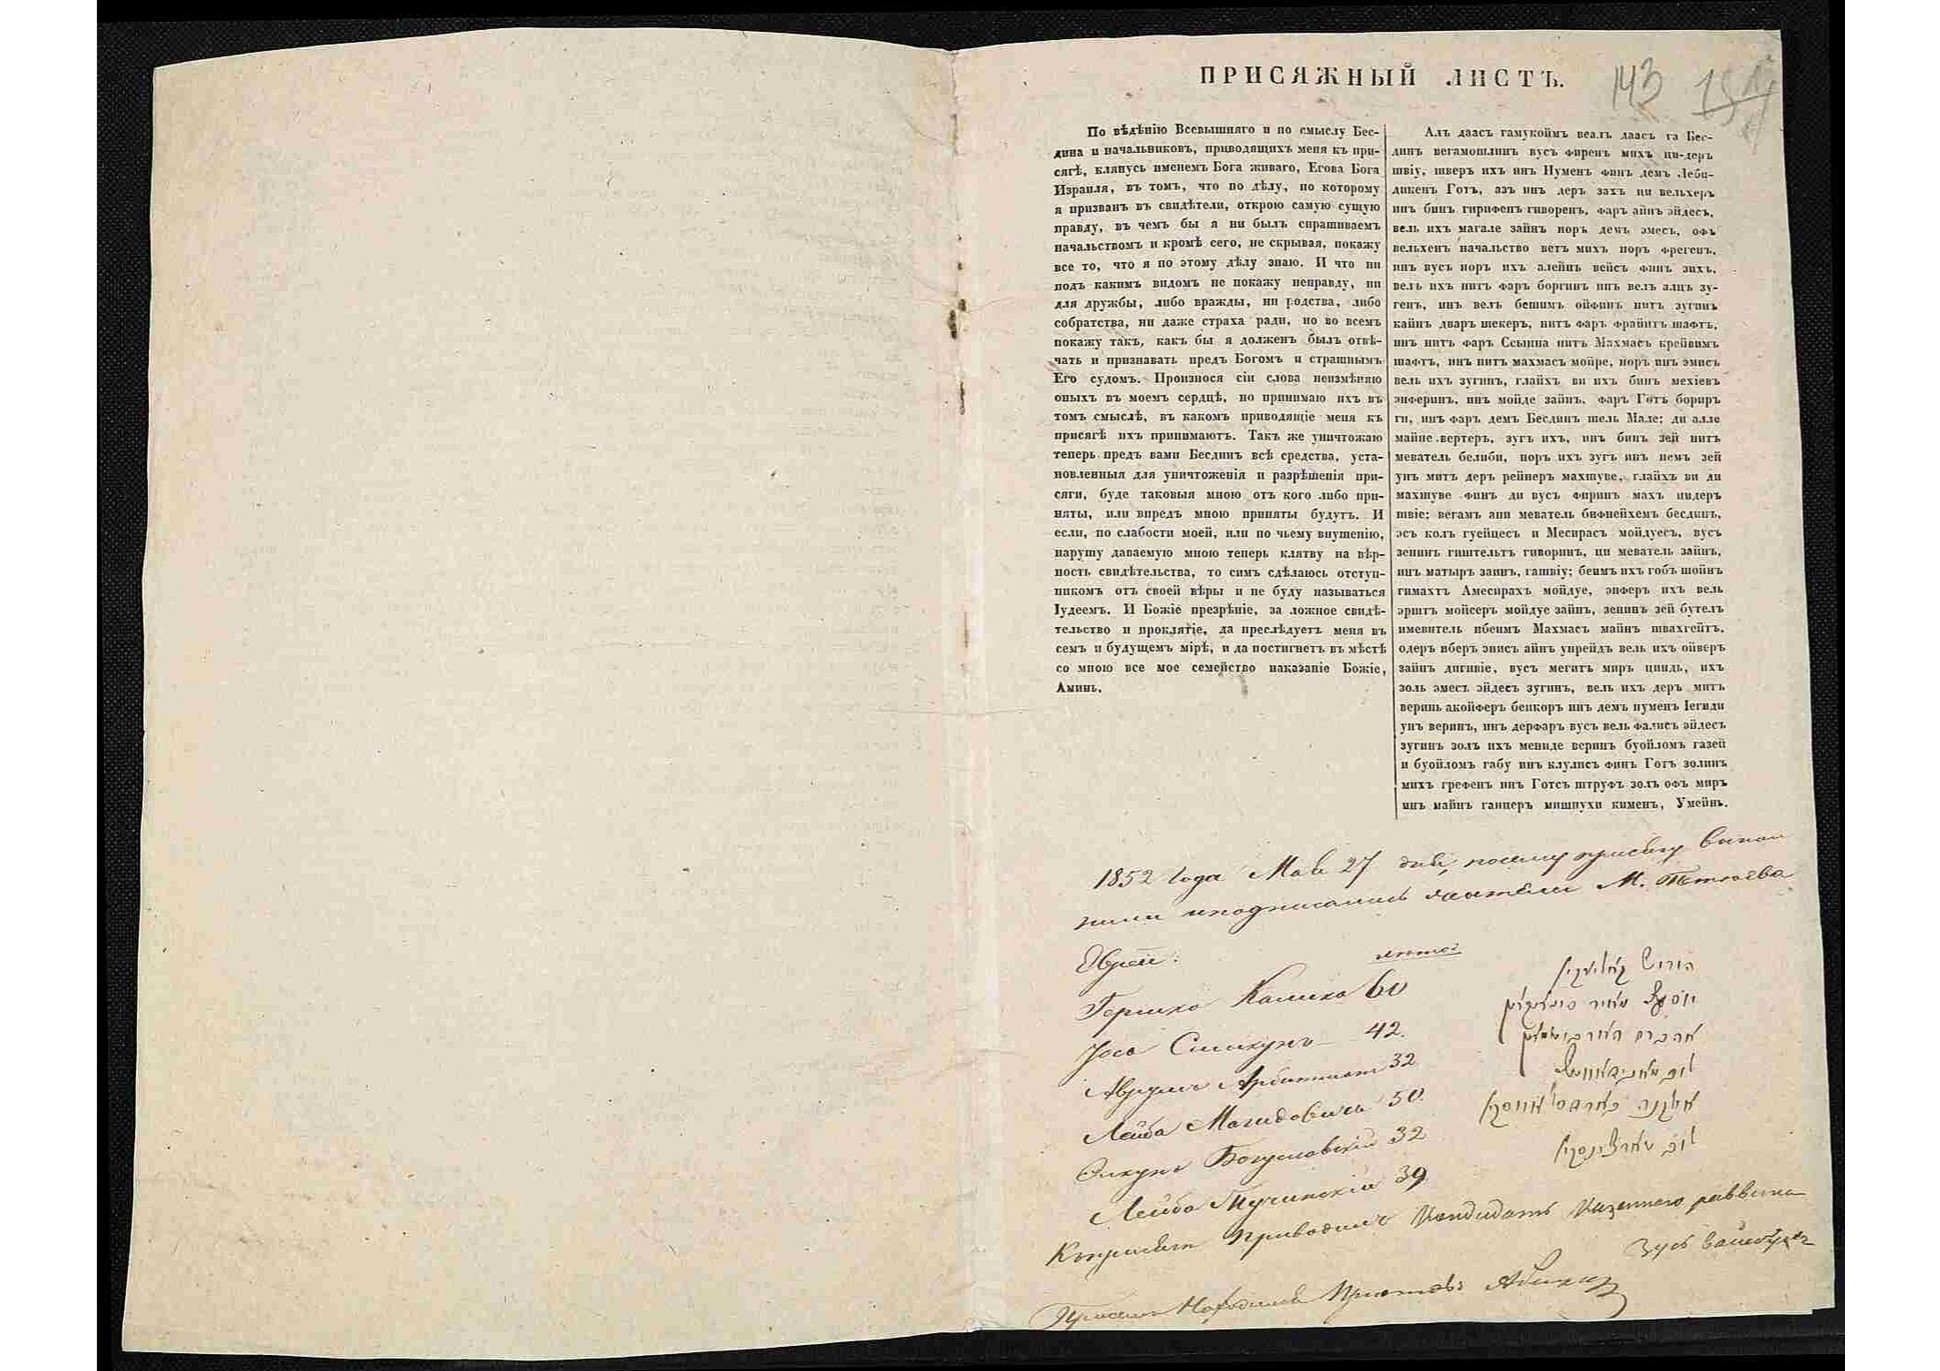 ПРИСЯЖНЫЙ ЛИСТЪ.
143
По вѣдѣнію Всевышняго и по смыслу Бес-
дина и начальниковъ, приводящихъ меня къ при-
сягѣ, клянусь именемъ Бога живаго, Егова Бога
Израиля, въ томъ, что по дѣлу, по которому
я призванъ въ свидѣтели, открою самую сущую
правду, въ чемъ бы я ни былъ спрашиваемъ
начальствомъ и кромѣ сего, не скрывая, покажу
все то, что я по этому дѣлу знаю. И что ни
подъ какимъ видомъ не покажу неправду, ни
для дружбы, либо вражды, ни родства, либо
собратства, ни даже страха ради, но во всемъ
покажу такъ, какъ бы я долженъ былъ отвѣ-
чать и признавать предъ Богомъ и страшнымъ
Его судомъ. Произнося сіи слова неизмѣняю
оныхъ въ моемъ сердцѣ, но принимаю ихъ въ
томъ смыслѣ, въ какомъ приводящіе меня къ
присягѣ ихъ принимаютъ. Такъ же уничтожаю
теперь предъ вами Бесдинъ всѣ средства, уста-
новленныя для уничтоженія и разрѣшенія при-
сяги, буде таковыя мною отъ кого либо при-
няты, или впредъ мною приняты будутъ. И
если, по слабости моей, или по чьему внушенію,
нарушу даваемую мною теперь клятву на вѣр-
ность свидѣтельства, то симъ сдѣлаюсь отступ-
никомъ отъ своей вѣры и не буду называться
Іудеемъ. И Божіе презрѣніе, за ложное свидѣ-
тельство и проклятіе, да преслѣдуетъ меня въ
семъ и будущемъ мірѣ, и да постигнетъ въ мѣстѣ
со мною все мое семейство наказаніе Божіе,
Аминь.
Алъ даасъ гамукоймъ веалъ даасъ га Бес-
динъ вегамошлинъ вусъ фиренъ михъ ци-деръ
швіу, шверъ ихъ инъ Нуменъ финъ демъ Леби-
дикенъ Готъ, азъ инъ деръ захъ ци вельхеръ
инъ бинъ гирифенъ гиворенъ, фаръ айнъ эйдесъ,
вель ихъ магале зайнъ норъ демъ эмесъ, офъ
вельхенъ начальство ветъ михъ норъ фрегенъ,
инъ вусъ норъ ихъ алейнъ вейсъ финъ зихъ,
вель ихъ нитъ фаръ боргинъ инъ вел алцъ зу-
генъ, инъ велъ бешимъ ойфинъ нитъ зугинъ
кайнъ дваръ шекеръ, нитъ фаръ фрайнтъ шафтъ,
инъ нитъ фаръ Ссынна нитъ Махмасъ крейвимъ
шафтъ, инъ нитъ махмасъ мойре, норъ инъ эмисъ
вель ихъ зугинъ, глайхъ ви ихъ бинъ мехіевъ
энферинъ, инъ мойде зайнъ, фаръ Готъ бориръ
ги, инъ фаръ демъ Бесдинъ шель Мале; ди алле
майне вертеръ, зугъ ихъ, инъ бинъ зей нитъ
меватель белиби, норъ ихъ зугъ инъ немъ зей
унъ митъ деръ рейнеръ махшуве, глайхъ ви ди
махшуве финъ ди вусъ фиринъ махъ цидеръ
швіе; вегамъ ани меватель бифнейхемъ бесдинъ,
эсъ колъ гуейцесъ и Месирасъ мойдуесъ, вусъ
зенинъ гиштельтъ гиворинъ, ци меватель зайнъ,
инъ матыръ заинъ, гашвіу; беимъ ихъ гобъ шойнъ
гимахтъ Амесирахъ мойдуе, энферъ ихъ вель
эрштъ мойсеръ мойдуе зайнъ, зенинъ зей бутелъ
имевитель нбеимъ Махмасъ майнъ швахгейтъ,
одеръ иберъ энисъ айнъ унрейдъ вель ихъ ойверъ
зайнъ дигивіе, вусъ мегитъ миръ циндъ, ихъ
золь эмесъ эйдесъ зугинъ, вель ихъ деръ митъ
веринь акойферъ беикоръ инъ демъ нуменъ Іегиди
унъ веринъ, инъ дерфаръ вусъ вель фалисъ эйдесъ
зугинъ золъ ихъ мениде веринъ буойломъ газей
и буойломъ габу инъ клулисъ финъ Готъ золинъ
михъ грефенъ инъ Готсъ штруфъ золъ офъ миръ
инъ майнъ ганцеръ мишпухи кименъ, Умейнъ.
1852 года Мая 27 дня, посему присягу выпол
нили и подписались жители М. Тетіева
Евреи: лѣтъ
Гершко Калика 60
Іось Слишкунъ 42.
Аврумъ Арбитман 32
Лейба Магидовичъ 50.
Элкуна Богуславскій 32
Лейба Тучинскій 39
יוסף מאיר
אברהם
ליב מאגידאוויטש
אלקנה באהוסלאווסקי
ליב
Къ присягѣ приводилъ Кандидатъ Казеннаго раввина